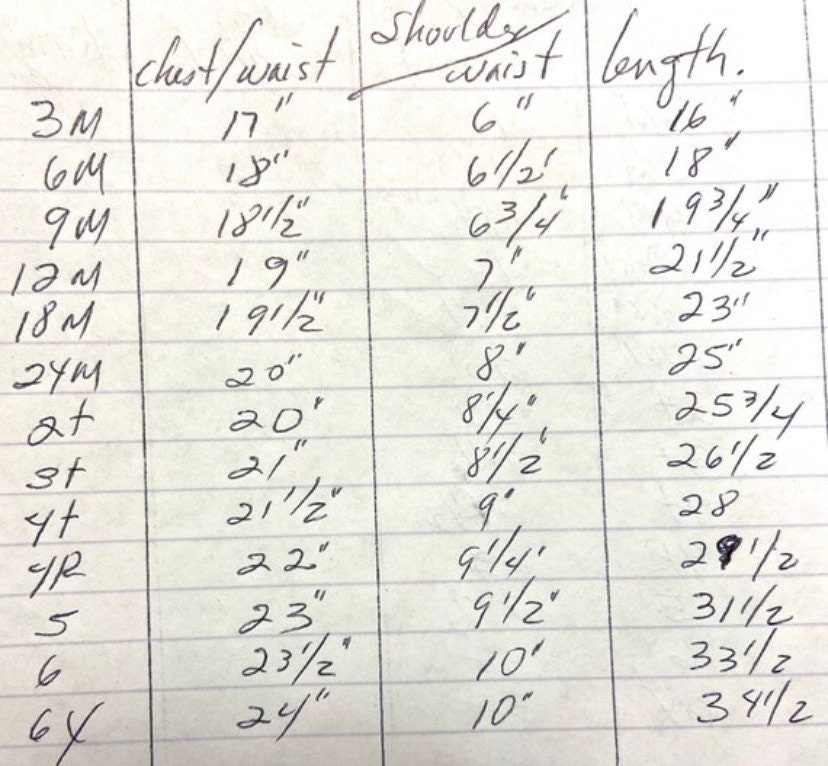 chest/waist Shoulder/waist length.
3M 17" 6" 16"
6M 18" 6 1/2' 18"
9M 18 1/2" 6 3/4" 19 3/4"
12M 19" 7" 21 1/2"
18M 19 1/2" 7 1/2" 23"
24M 20" 8" 25"
2t 20" 8 1/4" 25 3/4
3t 21" 8 1/2' 26 1/2
4t 21 1/2" 9" 28
4R 22" 9 1/4' 29 1/2
5 23" 9 1/2" 31 1/2
6 23 1/2" 10" 33 1/2
6X 24" 10" 34 1/2